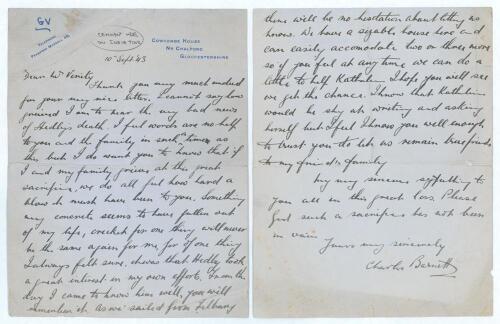 GV
TELEPHONE
COWCOMBE HOUSE
NR CHALFORD
GLOUCESTERSHIRE
10 Sept 43
Dear Mr Verity
Thank you very much indeed
for your very nice letter. I cannot say how
grieved I am to hear the very bad news
of Hedley's death. I feel words are no help
to you and the family in such times as
this but I do want you to know that if
I and my family grieve at this great
sacrifice, we do all feel how hard a
blow it must have been to you. Something
very concrete seems to have fallen out
of my life, cricket for one thing will never
be the same again for me, for if one thing
I always felt sure, it was that Hedley took
a great interest in my own effort. From the
day I came to know him well, you will
remember it as we sailed from Tilbury
there will be no hesitation about letting us
know. We have a sizable house here and
can easily accomodate two or three more
so if you feel at any time we can do a
little to help Kathleen I hope you will see
we get the chance. I know that Kathleen
would be shy at writing and asking
herself but I feel I know you well enough
to trust you do let us remain true friends
to my friend's family
My very sincere sympathy to
you all in this great loss. Please
God such a sacrifice has not been
in vain
Yours very sincerely
Charles Barnett